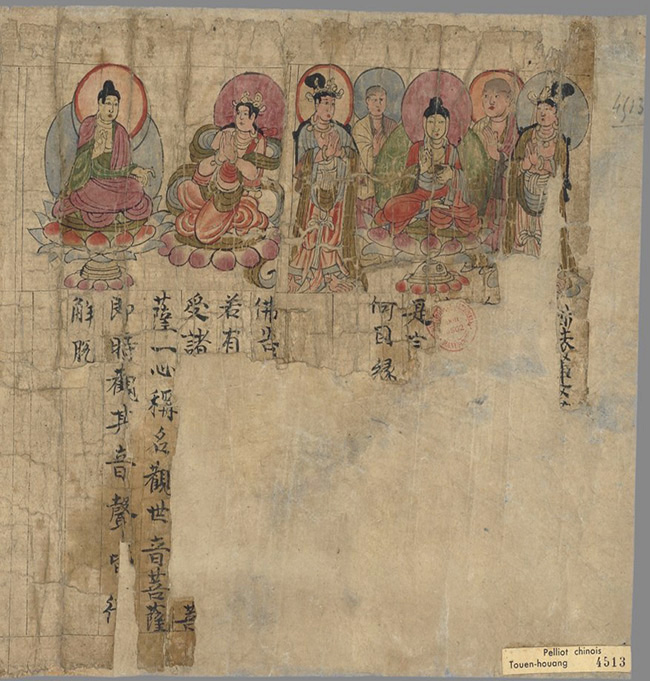 4513
是
何因緣
佛告
若有
受諸 菩
薩一心稱名觀世音菩薩
即時觀其音聲
解脱
Pelliot chinois
Touen-houang 4513